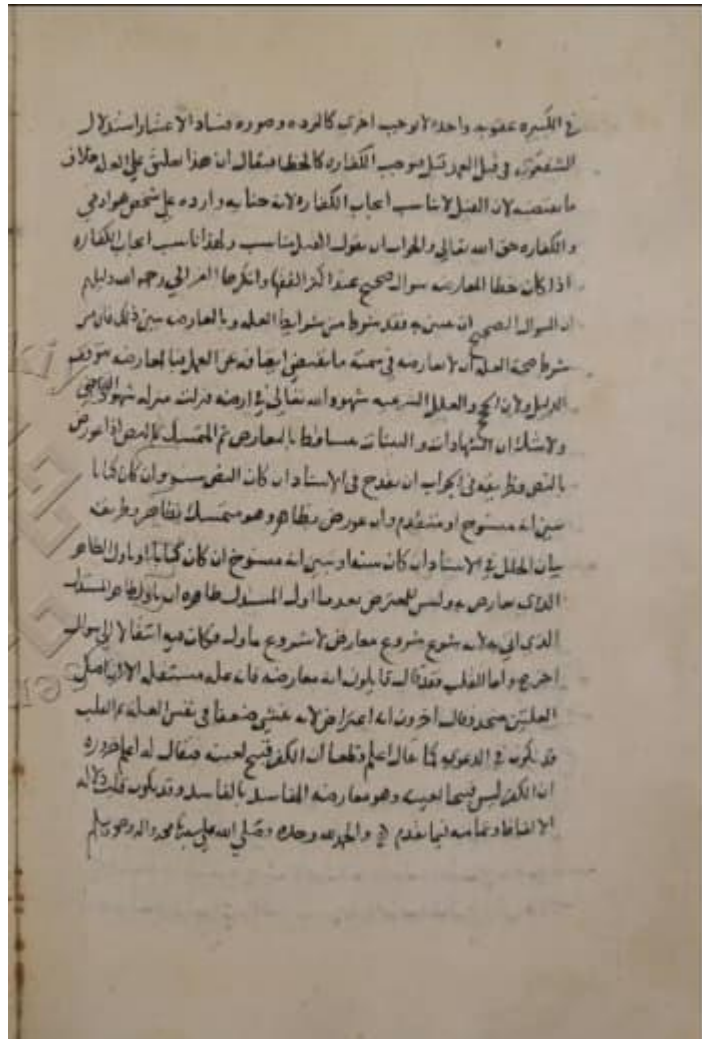 في الكبيره عقوبه واحده لا توجب اخرى كالرده وصوره فساد الاعتبار استدلال
الشفعوي في قتل العمد قتل فيوجب الكفاره كالخطا فيقال ان هذا تعليق على العله خلاف
ما تقتضيه لان القتل لا يناسب ايجاب الكفاره لانه جنايه وارده على شخص هو ادمي
والكفاره حق الله تعالى والجواب ان نقول القتل يناسب ولهذا ناسب ايجاب الكفاره
اذا كان خطا المعارضه سوال صحيح عند اكثر الفقها وانكرها الغزالي رحمه الله دليلهم
ان السوال الصحيح ان يبين به فقد شرط من شرايط العله وبالمعارضه يبين ذلك فان من
شرط صحة العله ان لا تعارضه في سمته ما يقتضي ايقافه عن العمل فبالمعارضه يتوقف
الدليل ولان الحجج والعلل الشرعيه شهود الله تعالى في ارضه فنزلت منزله شهود القاضي
ولا شك ان الشهادات والبينات تتساقط بالتعارض ثم المتمسك بالنص اذا عورض
بالنص وطريقه في الجواب ان يقدح في الاسناد ان كان النص سنه وان كان كتابا
يبين انه منسوخ او متقدم وان عورض بظاهر وهو متمسك بظاهر وطريقه
بيان الخلل في الاسناد ان كان سنه او يبين انه منسوخ ان كان كتابا او ياول الظاهر
الذي عارض به وليس للمعترض بعدما اول المستدل ظاهره ان ياول ظاهر المستدل
الذي اتى به لانه شرع شروع معارض لا شروع ماول فكان فيه انتقالا الى سوال
اخر واما القلب فقد قال قايلون انه معارضه فانه عله مستقله الا ان اصل
العلتين متحد وقال اخرون انه اعتراض لانه يبين ضعفا في نفس العله ثم القلب
قد يكون في الدعوى كما قال اعلم قطعا ان الكفر قبيح لعينه فيقال له اعلم ضروره
ان الكفر ليس قبيحا لعينه وهو معارضه الفاسد بالفاسد وقد يكون قلب دلاله
الالفاظ وتمامه فيما تقدم والحمد لله وحده وصلى الله على سيدنا محمد واله وصحبه وسلم